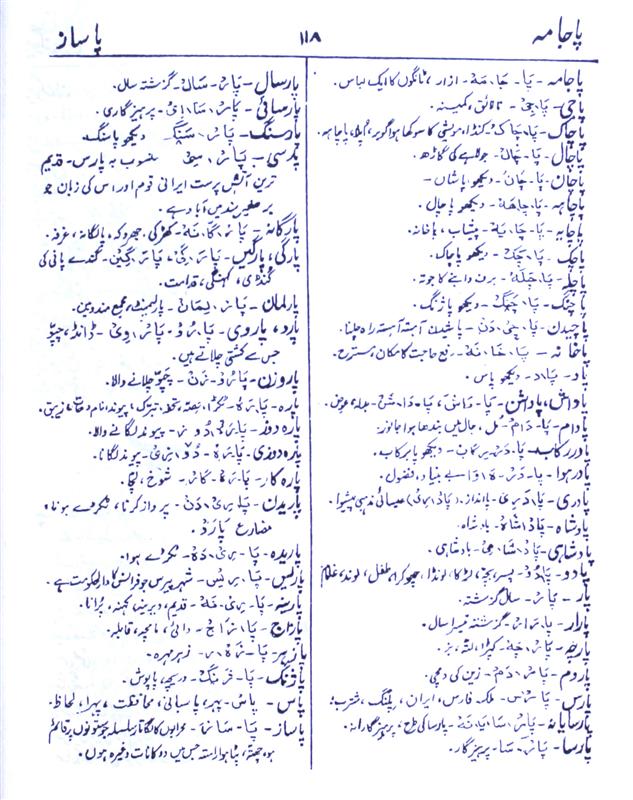 پاجامہ
۱۱۸
پاساز
پاجامہ - پَا - جَا - مَہ - ازار، ٹانگوں کا ایک لباس.
پاجی - پَا - جِیْ - نالائق، کمینہ.
پاچک - پَا - چَکْ کنڈا، مویشی کا سوکھا ہوا گوبر، اُپلا، پاچاہہ.
پاچال - پَا - چَالْ - جولاہے کی گاڑھ.
پاچان - پَا - چَانْ - دیکھو پاشان -
پاچاہہ - پَا - چَاھَہْ - دیکھو پاچال.
پاچایہ - پَا - چَا - یَہْ - پیشاب، پاخانہ.
پاچک - پَا - چَکْ - دیکھو پاچاک.
پاچلہ - پَا - چَلَہْ - برف وا ہنے کا جوتہ.
پاچنگ - پَا - چَنْگ - دیکھو پاژنگ.
پاچیدن - پَا - چِیْ - دَنْ - پاشیدن آہستہ آہستہ راہ چلنا.
پاخانہ - پَا - خَا - نَہْ - رفع حاجت کا مکان، مستراح.
پاد - پَا - دْ - دیکھو پاس.
پاداش، پاداشن - پَا - دَاشْ، پَا - دَا - شَنْ - بدلہ، عوض.
پادام - پَا - دَامْ - جال میں بندھا ہوا جانور.
پادررکاب - پَا - دَرْ - رِکَابْ - دیکھو پابرکاب.
پادرہوا - پَا - دَرْ - ھَوَا - بے بنیاد، فضول.
پادری - پَا - دَرِیْ - عیسائی مذہبی پیشوا.
پادشاہ - پَادْ - شَاہْ - بادشاہ.
پادشاہی - پَادْ - شَا - ھِیْ - بادشاہی.
پادو - پَا - دُوْ - پسر، بچہ، لڑکا، لونڈا، چھوکرا، طفل، لوند، غلام
پار - پَارْ - سال گزشتہ.
پارار - پَا - رَارْ - گزشتہ تیسرا سال.
پارچہ - پَارْ - چَہْ - کپڑا، لتّہ، بز.
پاردم - پَارْ - دُمْ - زین کی دمچی.
پارس - پَارْسْ - ملک فارس، ایران، پلنگ،
پارسایانہ - پَارْ - سَا - یَا - نَہْ - پارسا کی طرح، پرہیزگارانہ.
پارسا - پَارْ - سَا - پرہیز گار.
پارسال - پَارْ - سَالْ - گزشتہ سال.
پارسائی - پَارْ - سَا - اِیْ - پرہیز گاری.
پارسنگ - پَارْ - سَنْگ دیکھو پاسنگ
پارسی - پَارْ - سِیْ منسوب بہ پارس - قدیم
ترین آتش پرست ایرانی قوم اور اس کی زبان جو
برصغیر ہند میں آباد ہے.
پارگانہ - پَارْ - گَا - نَہْ - کھڑکی، جھروکہ، بالکانہ، غرفہ.
پارگی، پارگیں - پَارْ - گِیْ، پَارْ - گِیْن - گندے پانی کی
کنڈی، کہنگی، قدامت.
پارلمان - پَارْ - لِمَانْ - پارلیمنٹ، مجمع مندوبین.
پارو، پاروی - پَا - رُوْ - پَا - رْ - وِیْ - ڈانڈ، چپّو
جس سے کشتی چلاتے ہیں.
پاروزن - پَا - رُوْ - زَنْ - چپّو چلانے والا.
پارہ - پَا - رَہْ - ٹکڑا، حصہ، تحفہ، تبرک، پیوند،
پارہ دوز - پَا - رَہْ - دُوْزْ - پیوند لگانے والا.
پارہ دوزی - پَا - رَہْ - دُوْ - زِیْ - پیوند لگانا.
پارہ کار - پَا - رَہْ - کَارْ - شوخ، لچّا.
پاریدن - پَا - رِیْ - دَنْ - پرواز کرنا، ٹکڑے ہونا،
مضارع پَارَدْ.
پاریدہ - پَا - رِیْ - دَہْ - ٹکڑے ہوا.
پاریس - پَا - رِیْسْ - شہر پیرس جو فرانس کا دارالحکومت ہے.
پارینہ - پَا - رِیْ - نَہْ - قدیم، دیرینہ، کہنہ، پرانا.
پازاج - پَا - زَاجْ - دائی، ماماچہ، قابلہ.
پازہر - پَا - زَہْرْ - زہر مہرہ.
پاژنگ - پَا - ژَنْگ - دریچہ، پاپوش.
پاس - پَاسْ - پہر، پاسبانی، محافظت، پہرا، لحاظ.
پاساز - پَا - سَازْ - محرابوں کا لگاتار سلسلہ جو ستونوں پر قائم
ہو، چھتہ، پٹا ہوا راستہ جس میں دوکانات وغیرہ ہوں.